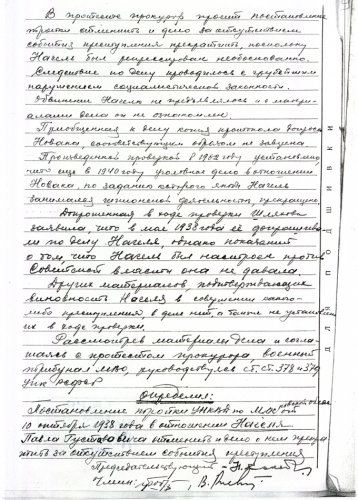 В протесте прокурор просит постановление
тройки отменить и дело за отсутствием
события преступления прекратить, поскольку
Нагель был репрессирован необоснованно.
Следствие по делу проводилось с грубейшим
нарушением социалистической законности.
Обвинение Нагелю не предъявлялось и с матери-
алами дела он не ознакомлен.
Приобщенная к делу копия протокола допроса
Новака, соответствующим образом не заверена
Произведенной проверкой в 1962 году установлено
что еще в 1940 году уголовное дело в отношении
Новака, по заданию которого якобы Нагель
занимался шпионской деятельностью, прекращено.
Допрошенная в ходе проверки
заявила, что в мае 1938 года её допрашива-
ли по делу Нагеля, однако показаний
о том, что Нагель был настроен против
Советской власти она не давала.
Других материалов, подтверждающих
виновность Нагеля в совершении какого-
либо преступления, в деле нет, а также не установлено
их в ходе проверки.
Рассмотрев материалы дела и согла-
шаясь с протестом прокурора, военный
трибунал МВО, руководствуясь ст.ст. 378 и 379
УПК РСФСР
Определил:
Постановление тройки УНКВД по МО от
10 октября 1938 года в отношении Нагеля
Павла Густавовича отменить и дело о нем прекра
тить за отсутствием события преступления
Председательствующий
Члены:
для подшивки